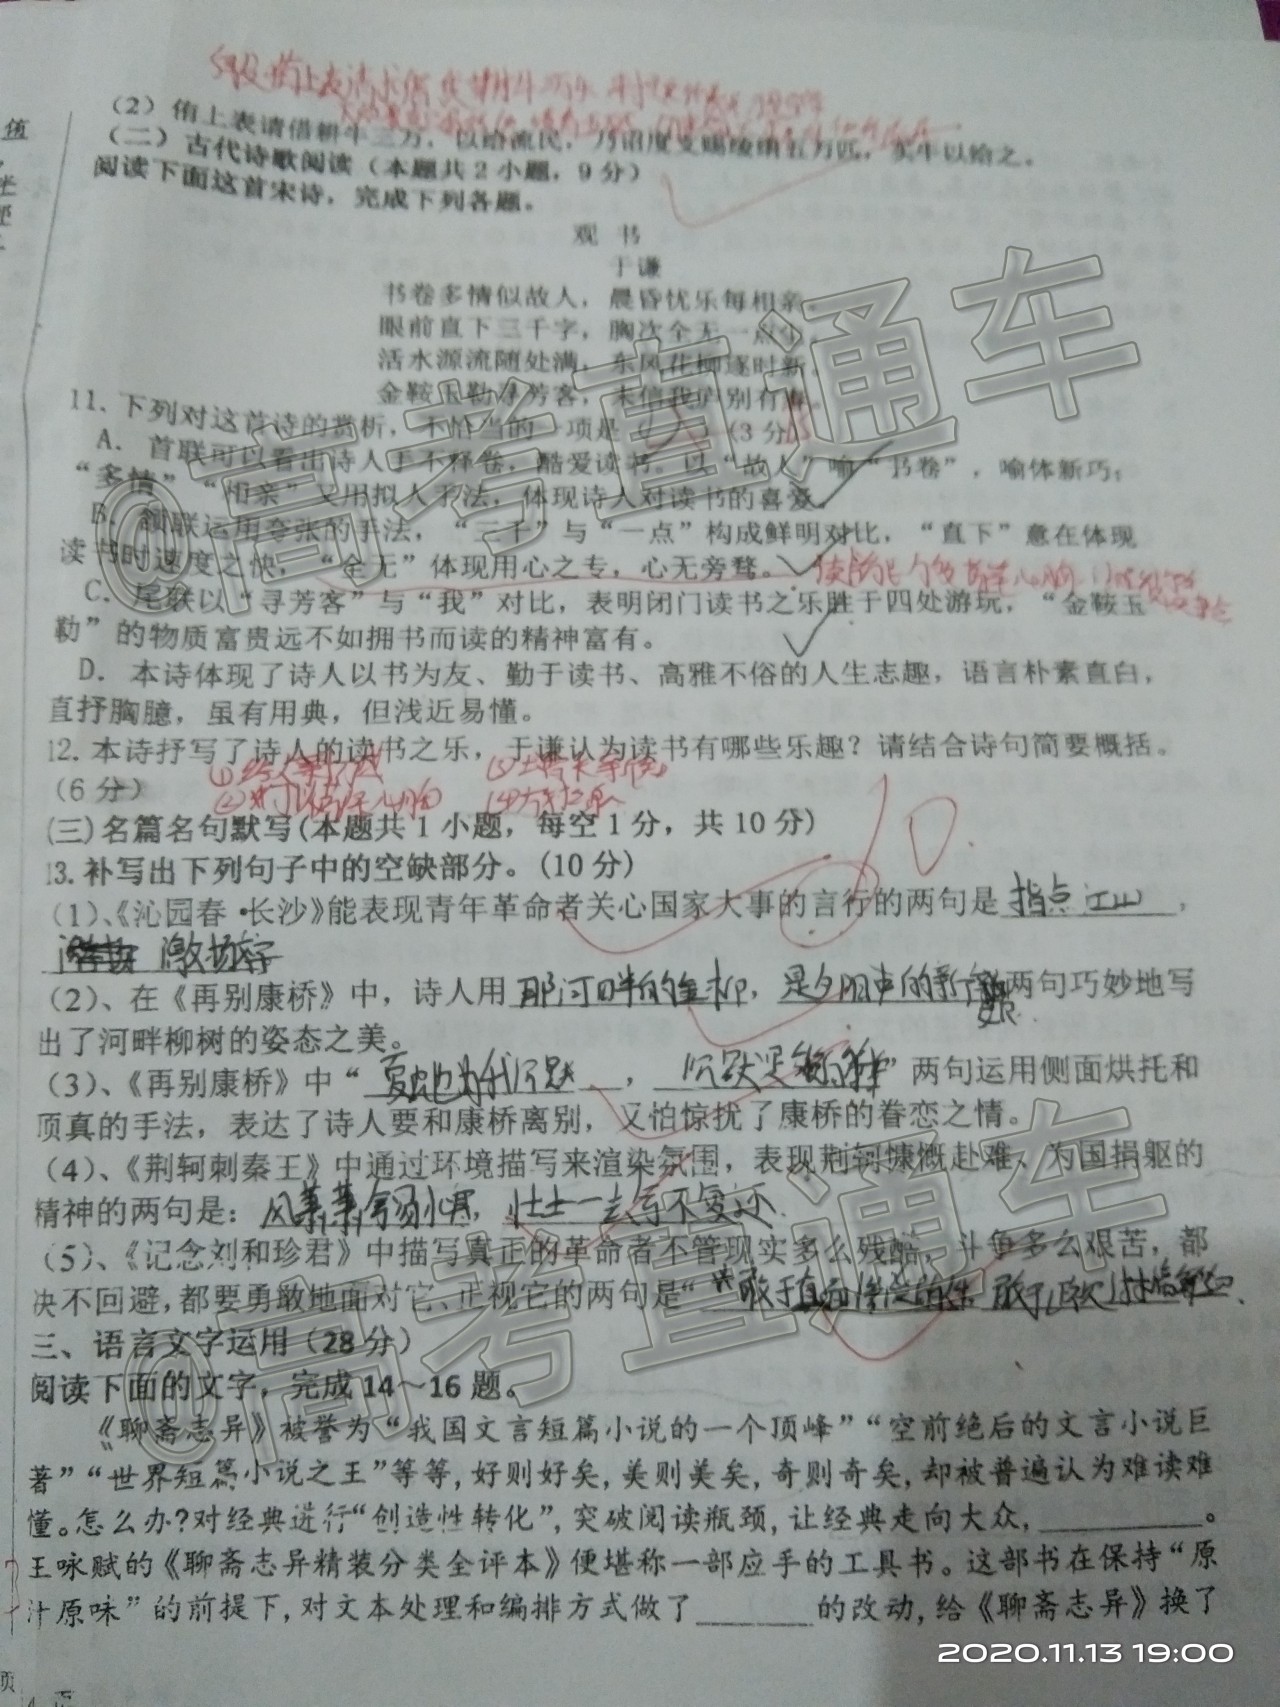 值
(2) 侑上表请借耕牛三万，以给流民，乃诏度支赐绫绢五万匹，买牛以给之。
(二) 古代诗歌阅读（本题共2小题，9分）
阅读下面这首宋诗，完成下列各题。
观 书
于谦
书卷多情似故人，晨昏忧乐每相亲。
眼前直下三千字，胸次全无一点尘。
活水源流随处满，东风花柳逐时新。
金鞍玉勒寻芳客，未信我庐别有春。
11. 下列对这首诗的赏析，不恰当的一项是（ ）（3分）B
A. 首联可以看出诗人手不释卷，酷爱读书。以“故人”喻“书卷”，喻体新巧；
“多情”“相亲”又用拟人手法，体现诗人对读书的喜爱。
B. 颔联运用夸张的手法，“三千”与“一点”构成鲜明对比，“直下”意在体现
读书时速度之快，“全无”体现用心之专，心无旁骛。
C. 尾联以“寻芳客”与“我”对比，表明闭门读书之乐胜于四处游玩，“金鞍玉
勒”的物质富贵远不如拥书而读的精神富有。
D. 本诗体现了诗人以书为友、勤于读书、高雅不俗的人生志趣，语言朴素直白，
直抒胸臆，虽有用典，但浅近易懂。
12. 本诗抒写了诗人的读书之乐，于谦认为读书有哪些乐趣？请结合诗句简要概括。
(6分)
(三) 名篇名句默写(本题共1小题，每空1分，共10分)
10.
13. 补写出下列句子中的空缺部分。(10分)
(1)、《沁园春·长沙》能表现青年革命者关心国家大事的言行的两句是 指点江山，
激扬文字
(2)、在《再别康桥》中，诗人用 那河畔的金柳，是夕阳中的新娘 两句巧妙地写
出了河畔柳树的姿态之美。
(3)、《再别康桥》中“ 夏虫也为我沉默，沉默是 ”两句运用侧面烘托和
顶真的手法，表达了诗人要和康桥离别，又怕惊扰了康桥的眷恋之情。
(4)、《荆轲刺秦王》中通过环境描写来渲染氛围，表现荆轲慷慨赴难、为国捐躯的
精神的两句是：风萧萧兮易水寒，壮士一去兮不复还.
(5)、《记念刘和珍君》中描写真正的革命者不管现实多么残酷，斗争多么艰苦，都
决不回避，都要勇敢地面对它、正视它的两句是“ 敢于直面惨淡的人生 敢于正视淋漓的鲜血.
三、语言文字运用（28分）
阅读下面的文字，完成14～16题。
《聊斋志异》被誉为“我国文言短篇小说的一个顶峰”“空前绝后的文言小说巨
著”“世界短篇小说之王”等等，好则好矣，美则美矣，奇则奇矣，却被普遍认为难读难
懂。怎么办？对经典进行“创造性转化”，突破阅读瓶颈，让经典走向大众，________。
王咏赋的《聊斋志异精装分类全评本》便堪称一部应手的工具书。这部书在保持“原
汁原味”的前提下，对文本处理和编排方式做了______的改动，给《聊斋志异》换了
页
2020.11.13 19:00
@高考直通车
@高考直通车